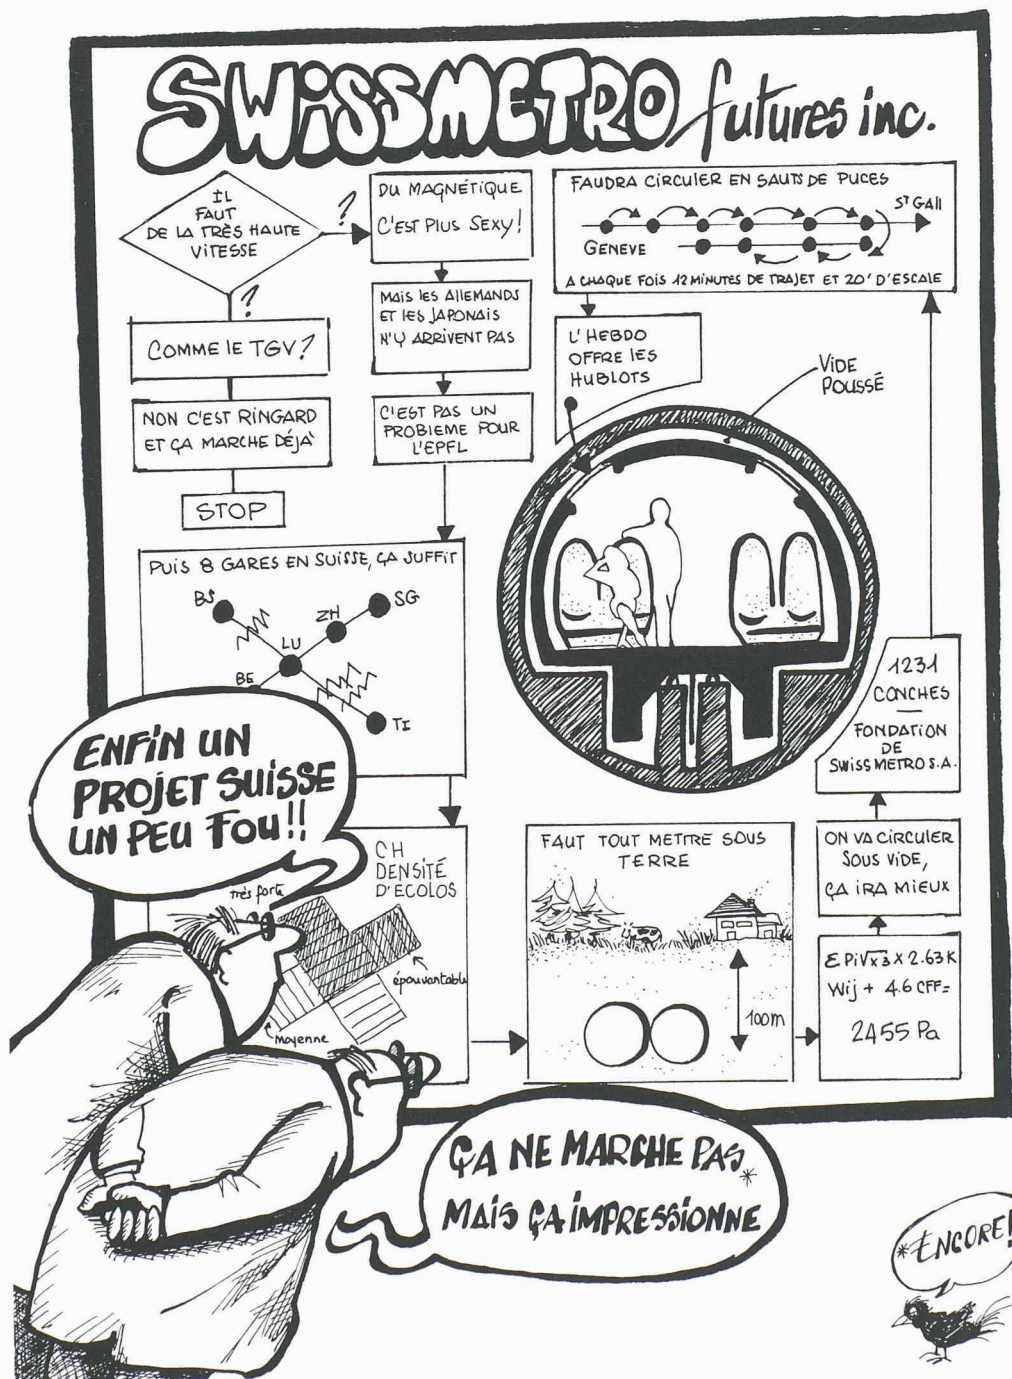 SWISSMETRO futures inc.
IL
FAUT
DE LA TRÈS HAUTE
VITESSE
?
?
COMME LE TGV?
NON C'EST RINGARD
ET ÇA MARCHE DÉJÀ
STOP
DU MAGNÉTIQUE
C'EST PLUS SEXY!
MAIS LES ALLEMANDS
ET LES JAPONAIS
N'Y ARRIVENT PAS
C'EST PAS UN
PROBLEME POUR
L'EPFL
FAUDRA CIRCULER EN SAUTS DE PUCES
ST GALL
GENEVE
A CHAQUE FOIS 12 MINUTES DE TRAJET ET 20' D'ESCALE
L'HEBDO
OFFRE LES
HUBLOTS
VIDE
POUSSÉ
PUIS 8 GARES EN SUISSE, ÇA SUFFIT
BS
ZH
SG
LU
BE
TI
ENFIN UN
PROJET SUISSE
UN PEU FOU!!
CH
DENSITÉ
D'ECOLOS
très forte
épouvantable
Moyenne
FAUT TOUT METTRE SOUS
TERRE
100m
1231
CONCHES
—
FONDATION
DE
SWISSMETRO S.A.
ON VA CIRCULER
SOUS VIDE,
ÇA IRA MIEUX
Σ Pi√x3 x 2.63 K
Wij + 4.6 CFF=
2455 Pa
ÇA NE MARCHE PAS*
MAIS ÇA IMPRESSIONNE
*ENCORE!